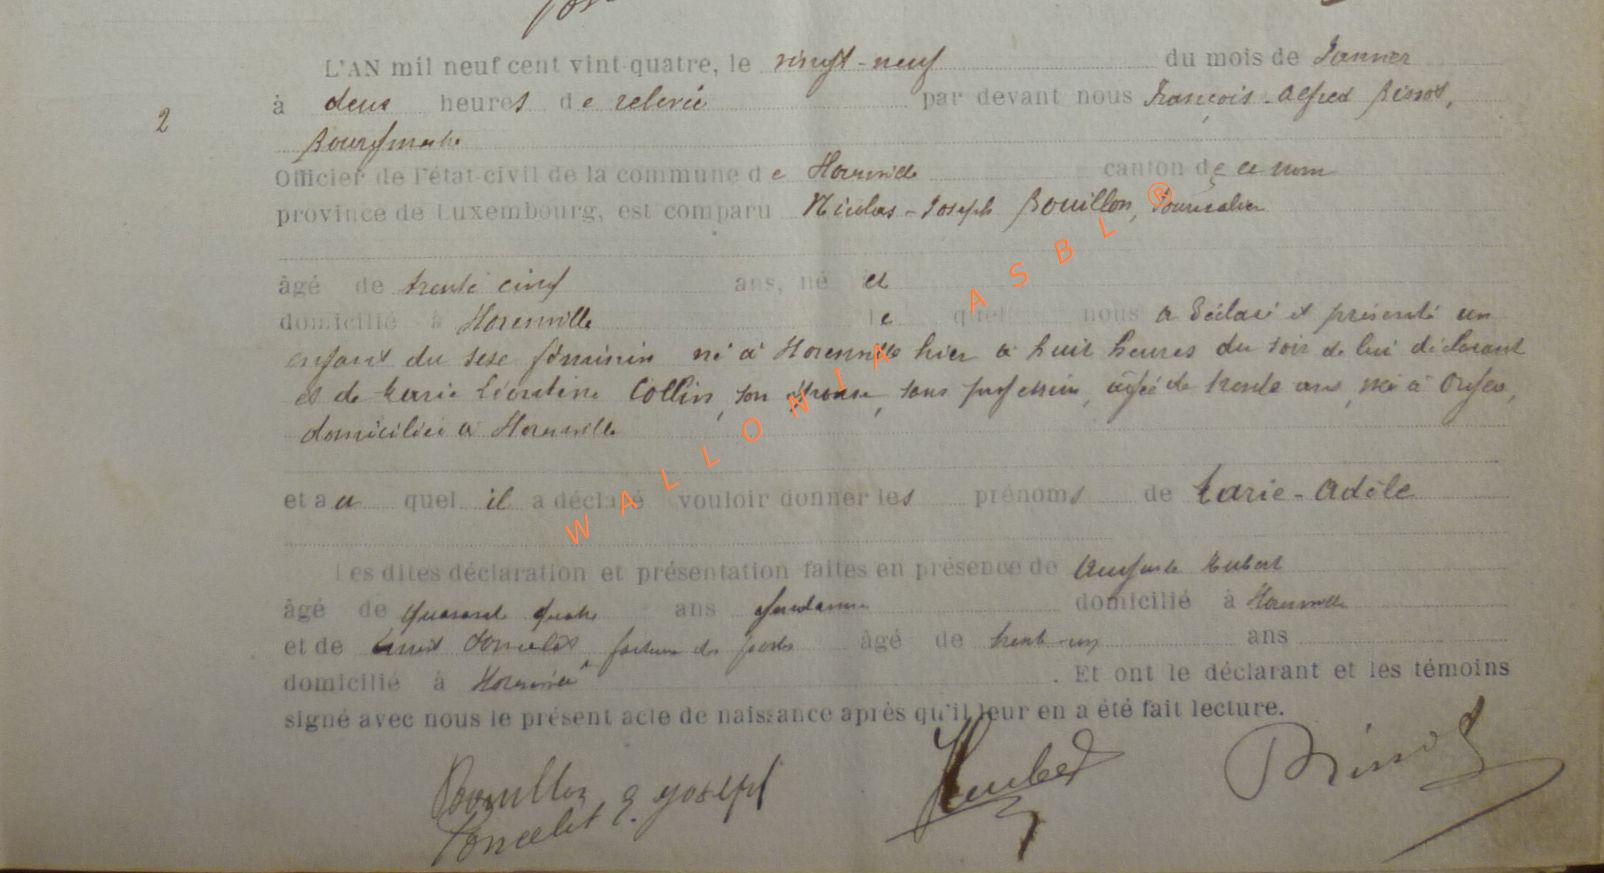 L'AN mil neuf cent vint-quatre, le vingt-neuf du mois de Janvier
2
à deux heures de relevée par devant nous François-Alfred Brisso,
Bourgmestre
Officier de l'état-civil de la commune de Houmville canton de ce nom
province de Luxembourg, est comparu Nicolas-Joseph Bouillon, Journalier
âgé de trente cinq ans, né et
domicilié à le quel nous a déclaré et présenté un
enfant du sexe féminin né à hier à huit heures du soir de lui déclarant
et de Marie Léontine Collin, son épouse, sans profession, âgée de trente ans, née à
domiciliée à
et au quel il a déclaré vouloir donner les prénoms de Marie-Adèle
Les dites déclaration et présentation faites en présence de Auguste Hubert
âgé de quarante quatre ans gendarme domicilié à
et de Poncelet, facteur des postes âgé de trente-un ans
domicilié à . Et ont le déclarant et les témoins
signé avec nous le présent acte de naissance après qu'il leur en a été fait lecture.
Bouillon N. Joseph
Poncelet E.
Hubert
WALLONIA ASBL ®